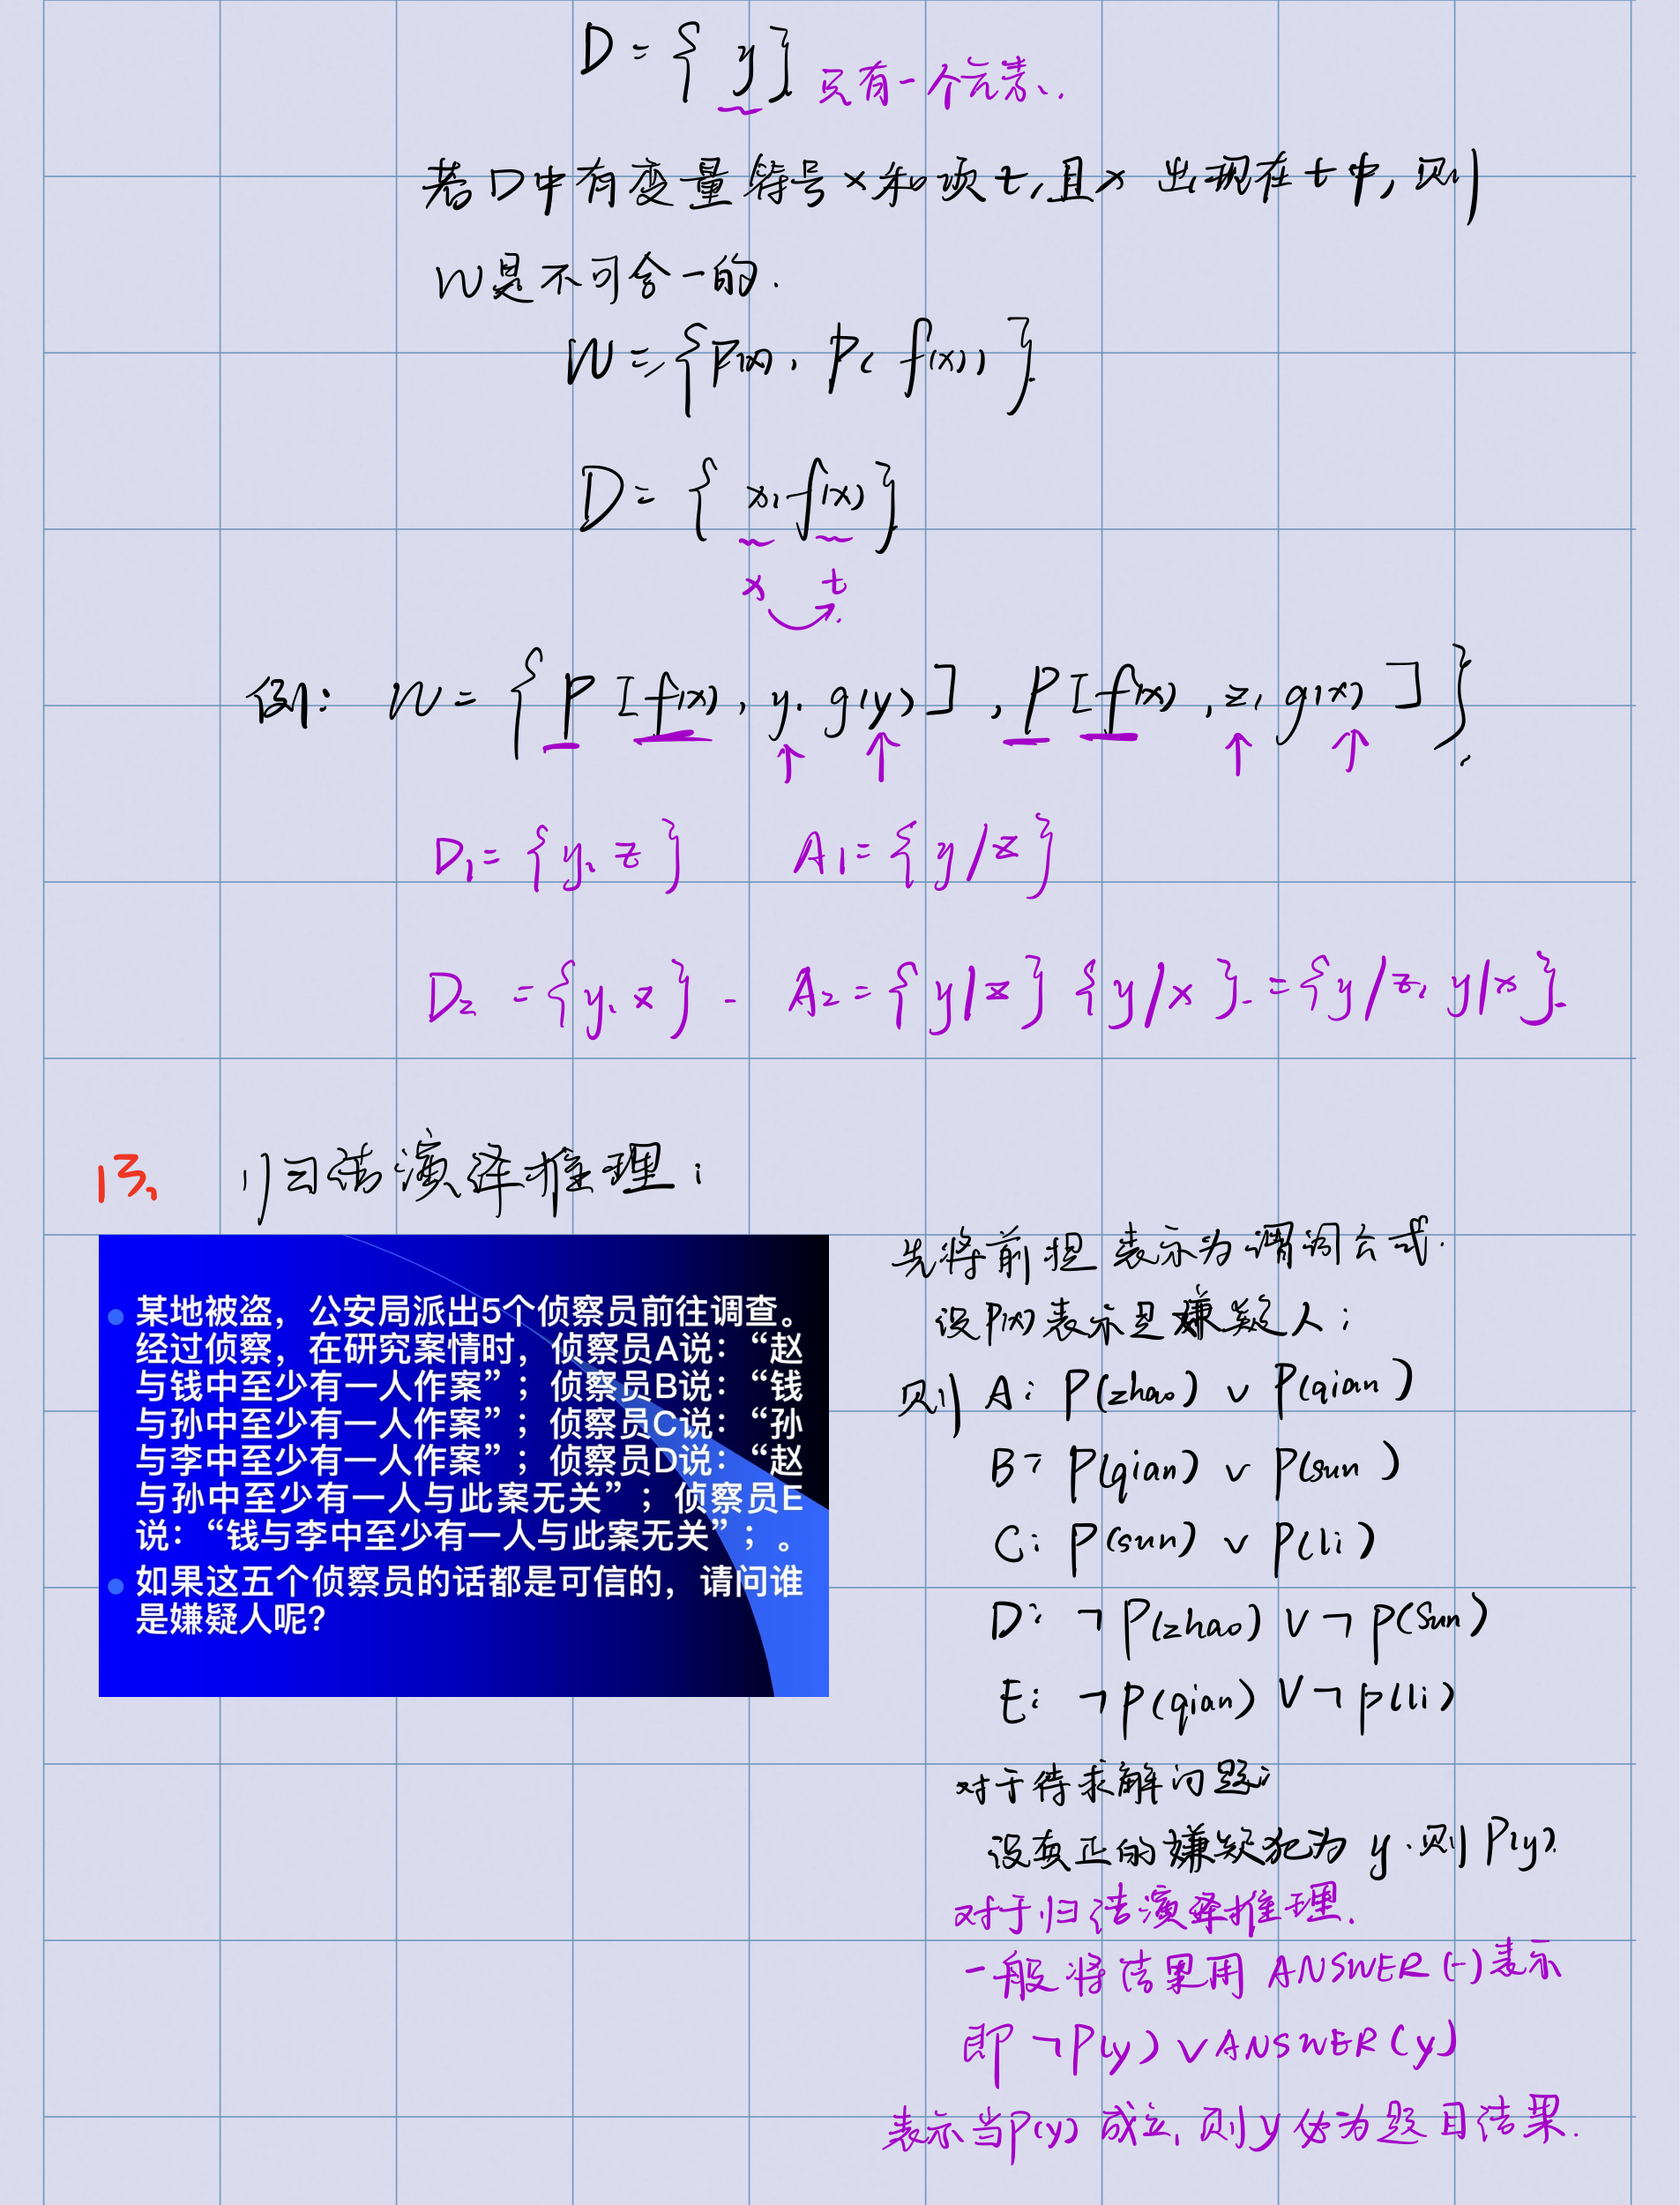 D = { y } 只有一个元素.
若D中有变量符号x和项t,且x出现在t中,则
W是不可合一的.
W = {P(x), P(f(x))}
D = { x, f(x)}
x t
例: W = { P[f(x), y, g(y)], P[f(x), z, g(x)] }.
D₁= {y, z} A₁= { y/z }
D₂ = {y, x} - A₂ = { y/z } {y/x} = {y/z, y/x}
13、 归结演绎推理:
某地被盗，公安局派出5个侦察员前往调查。
经过侦察，在研究案情时，侦察员A说：“赵
与钱中至少有一人作案”；侦察员B说：“钱
与孙中至少有一人作案”；侦察员C说：“孙
与李中至少有一人作案”；侦察员D说：“赵
与孙中至少有一人与此案无关”；侦察员E
说：“钱与李中至少有一人与此案无关”；。
如果这五个侦察员的话都是可信的，请问谁
是嫌疑人呢?
先将前提表示为谓词公式.
设P(x)表示是嫌疑人;
则 A: P(zhao) ∨ P(qian)
B: P(qian) ∨ P(sun)
C: P(sun) ∨ P(li)
D: ¬P(zhao) ∨ ¬P(Sun)
E: ¬P(qian) ∨ ¬P(li)
对于待求解问题:
设真正的嫌疑犯为 y.则 P(y).
对于归结演绎推理.
一般将结果用 ANSWER(-)表示
即 ¬P(y) ∨ ANSWER(y)
表示当P(y)成立,则y作为题目结果.